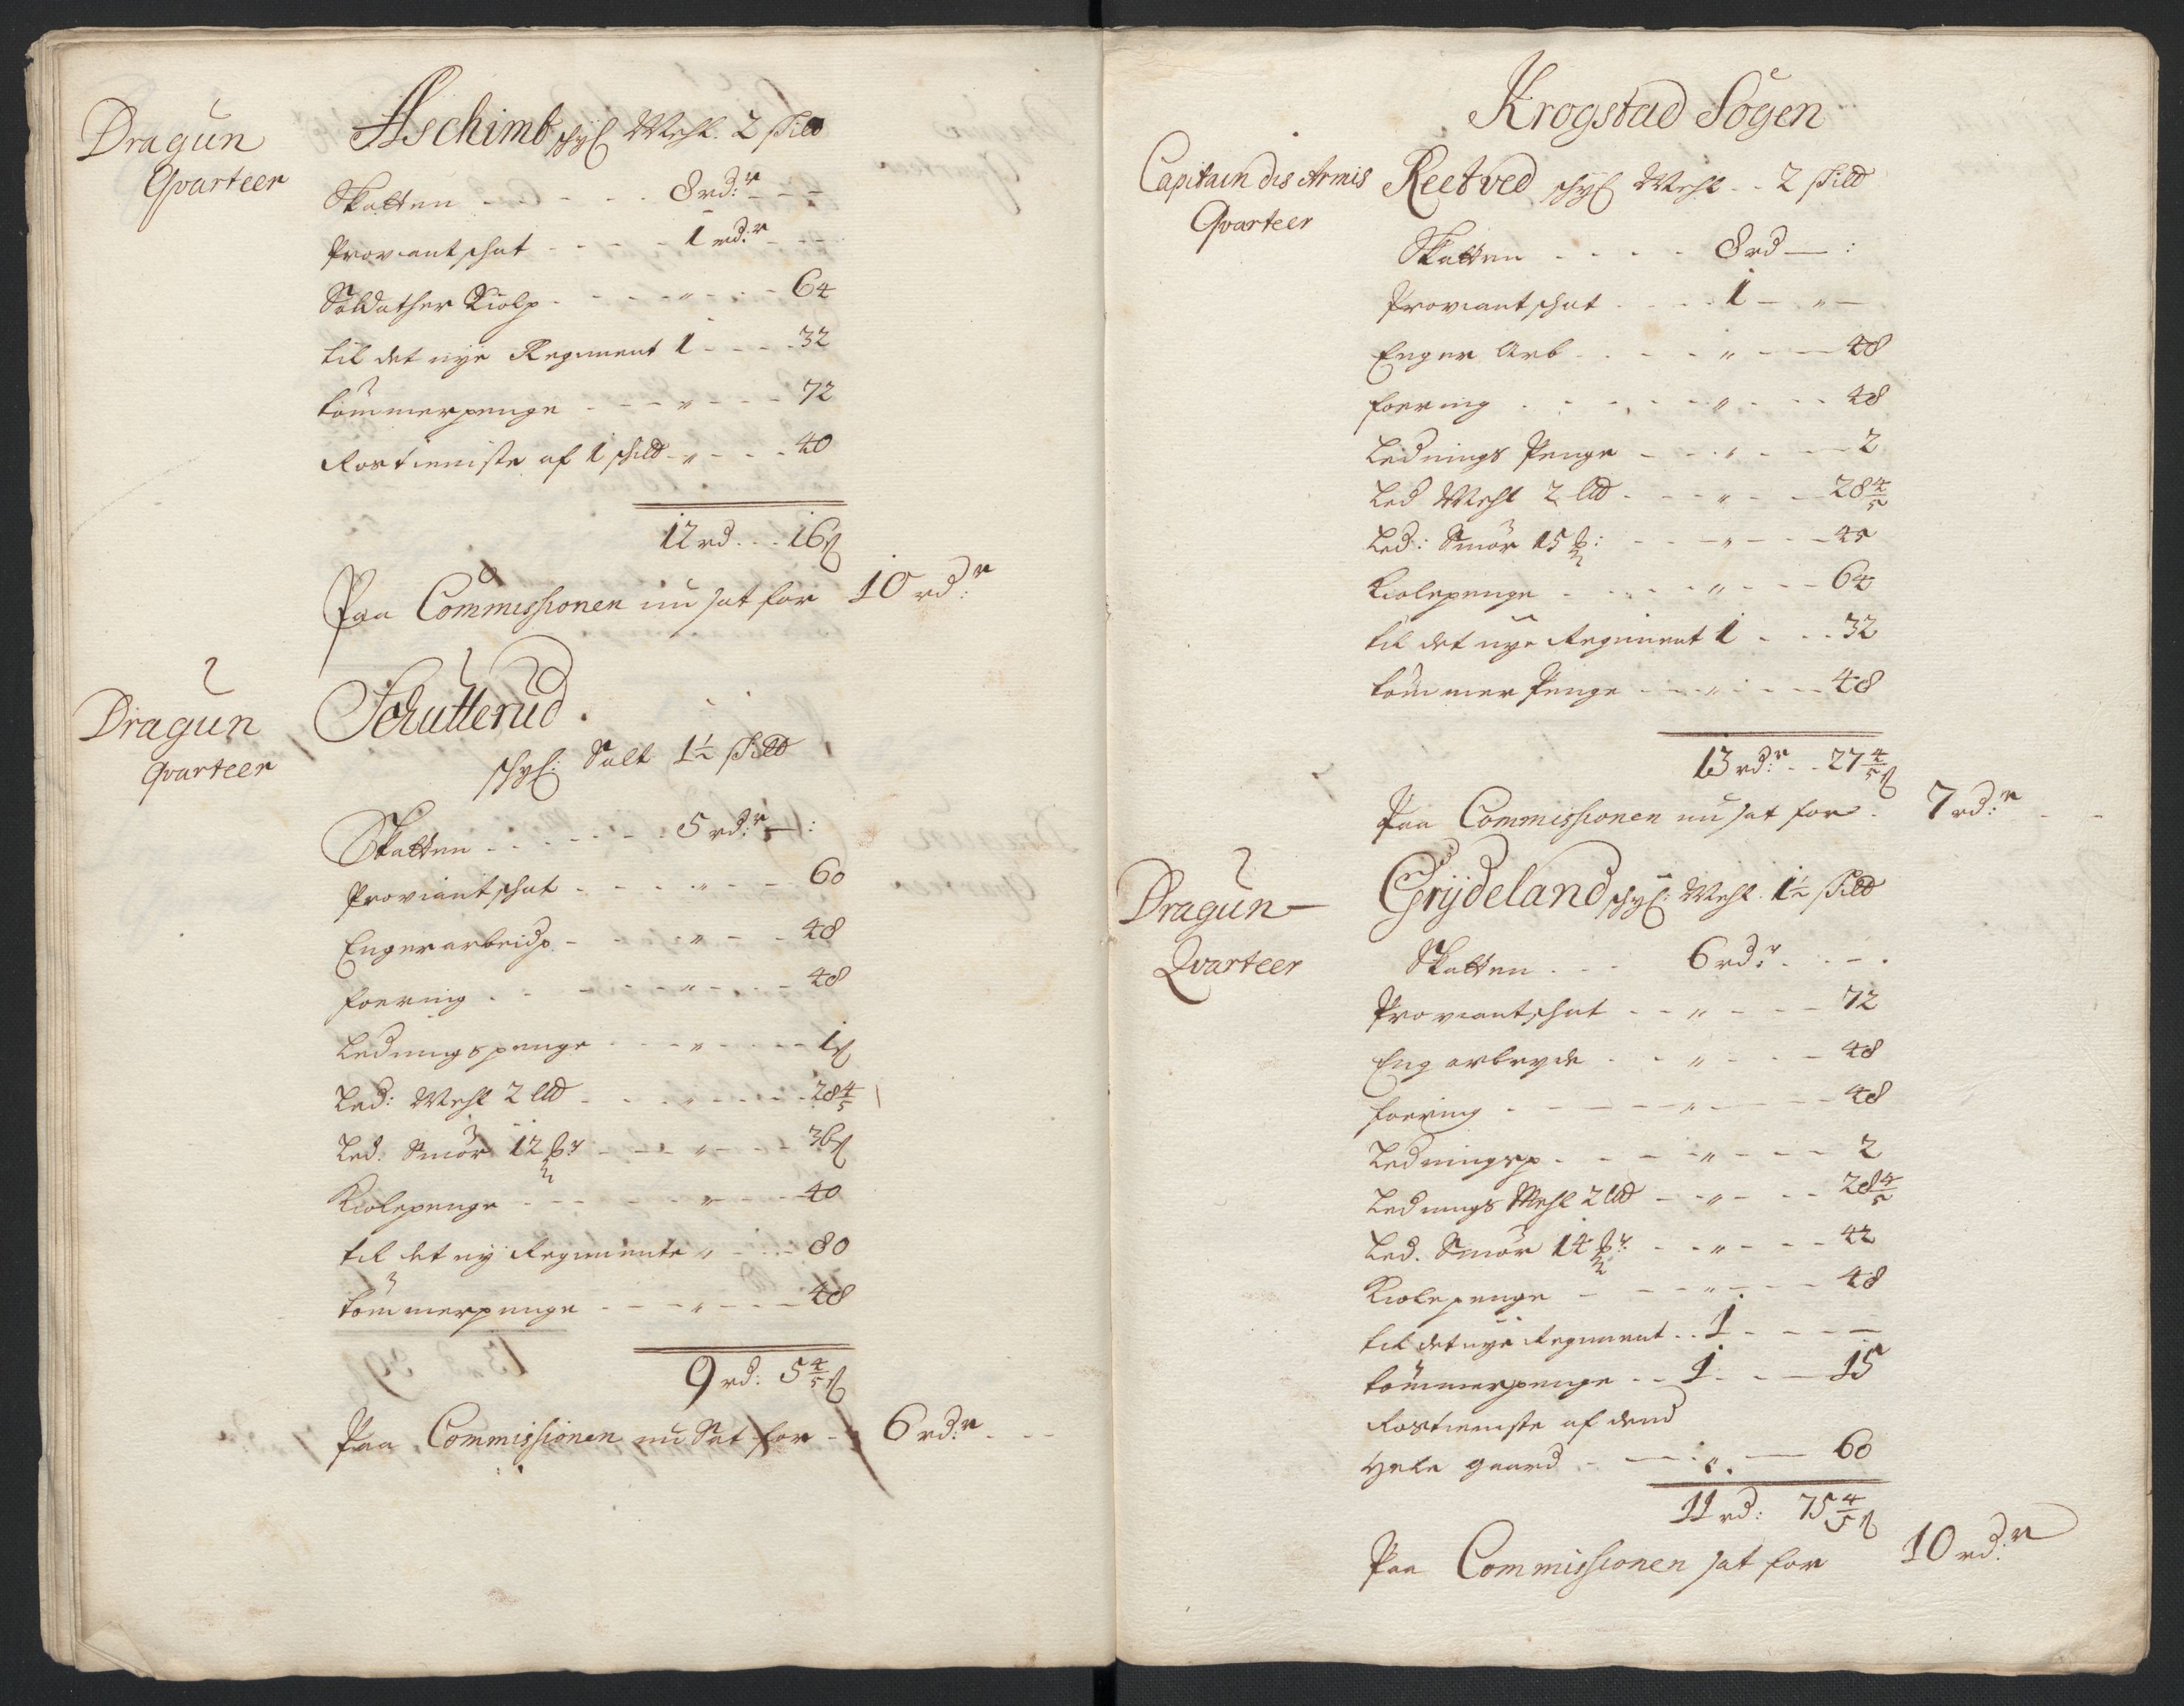 Dragun
Qvarteer
Aschimb schyl Mehl. 2 skild
Skatten - - - - 8 rd:r - -
Proviantschat - - - - 1 rd:r - -
Soldather Kiolp. - - - „ - - 64
til det nye Regiment 1 - - - 32
tömmerpenge - - - „ - - - 72
Rostieniste af 1 skild - „ - - - 40
12 rd. - - 16 s
Paa Commissionen nu sat for 10 rd:r
Dragun
Qvarteer
Schutterud.
schyl: Salt 1½ skild
Skatten - - - - - - 5 rd:r - :
Proviantschat - - - - „ - - 60
Engerarbeids - - - - „ - - 48
foering . - - - - „ - - - 48
Ledningspenge - - - „ - - - - 1 s
Led: Mehl 2 lld - - - „ - - - - 28 4/5
Led. Smör 12 ℔r - - - „ - - - 36 s
Kiolepenge - - - - - „ - - - 40
til det ny Regimente „ - - - 80
tömmerpenge - - - - „ - - - 48
9 rd: 5 4/5 s
Paa Commissionen nu Sat for - 6 rd:r - - -
Krogstad Sogen
Capitain des Armis
Qvarteer
Reetved schyl Mehl - - 2 skild
Skatten - - - - 8 rd — :
Proviantschat - - - - 1 - „ —
Enger Arb - - - - „ - — 48
foering . - - - - „ - - - 48
Lednings Penge - - - „ - - — 2
Led Mehl 2 lld - - - „ - - - 28 4/5
Led: Smör 15 ℔: - - - „ - - - 45
Kiolepenge - - - - - „ - - - 64
til det nye Regiment 1 - - - 32
tömmer Penge - - - „ - - - 48
13 rd:r - - 27 4/5 s
Paa Commissionen nu sat for . 7 rd:r - -
Dragun -
Qvarteer
Grydeland schyl: Mehl. 1½ skild
Skatten - - - 6 rd:r - - - .
Proviantschat - - „ - - - 72
Eng arbeyde - - „ - - - 48
foering - - — — - „ - - - - 48
Ledningsp - - - - „ - - - 2
Lednings Mehl 2 lld - - „ - - - 28 4/5
Led. Smör 14 ℔r: - - „ - - - 42
Kiolepenge - - - - „ - - - 48
til det nye Regiment - - 1 - - - —
tömmerpenge - - 1 - - - 15
Rostieniste af dend
Hele gaard - — - „ - — 60
11 rd: 75 4/5 s
Paa Commissionen sat for 10 rd:r